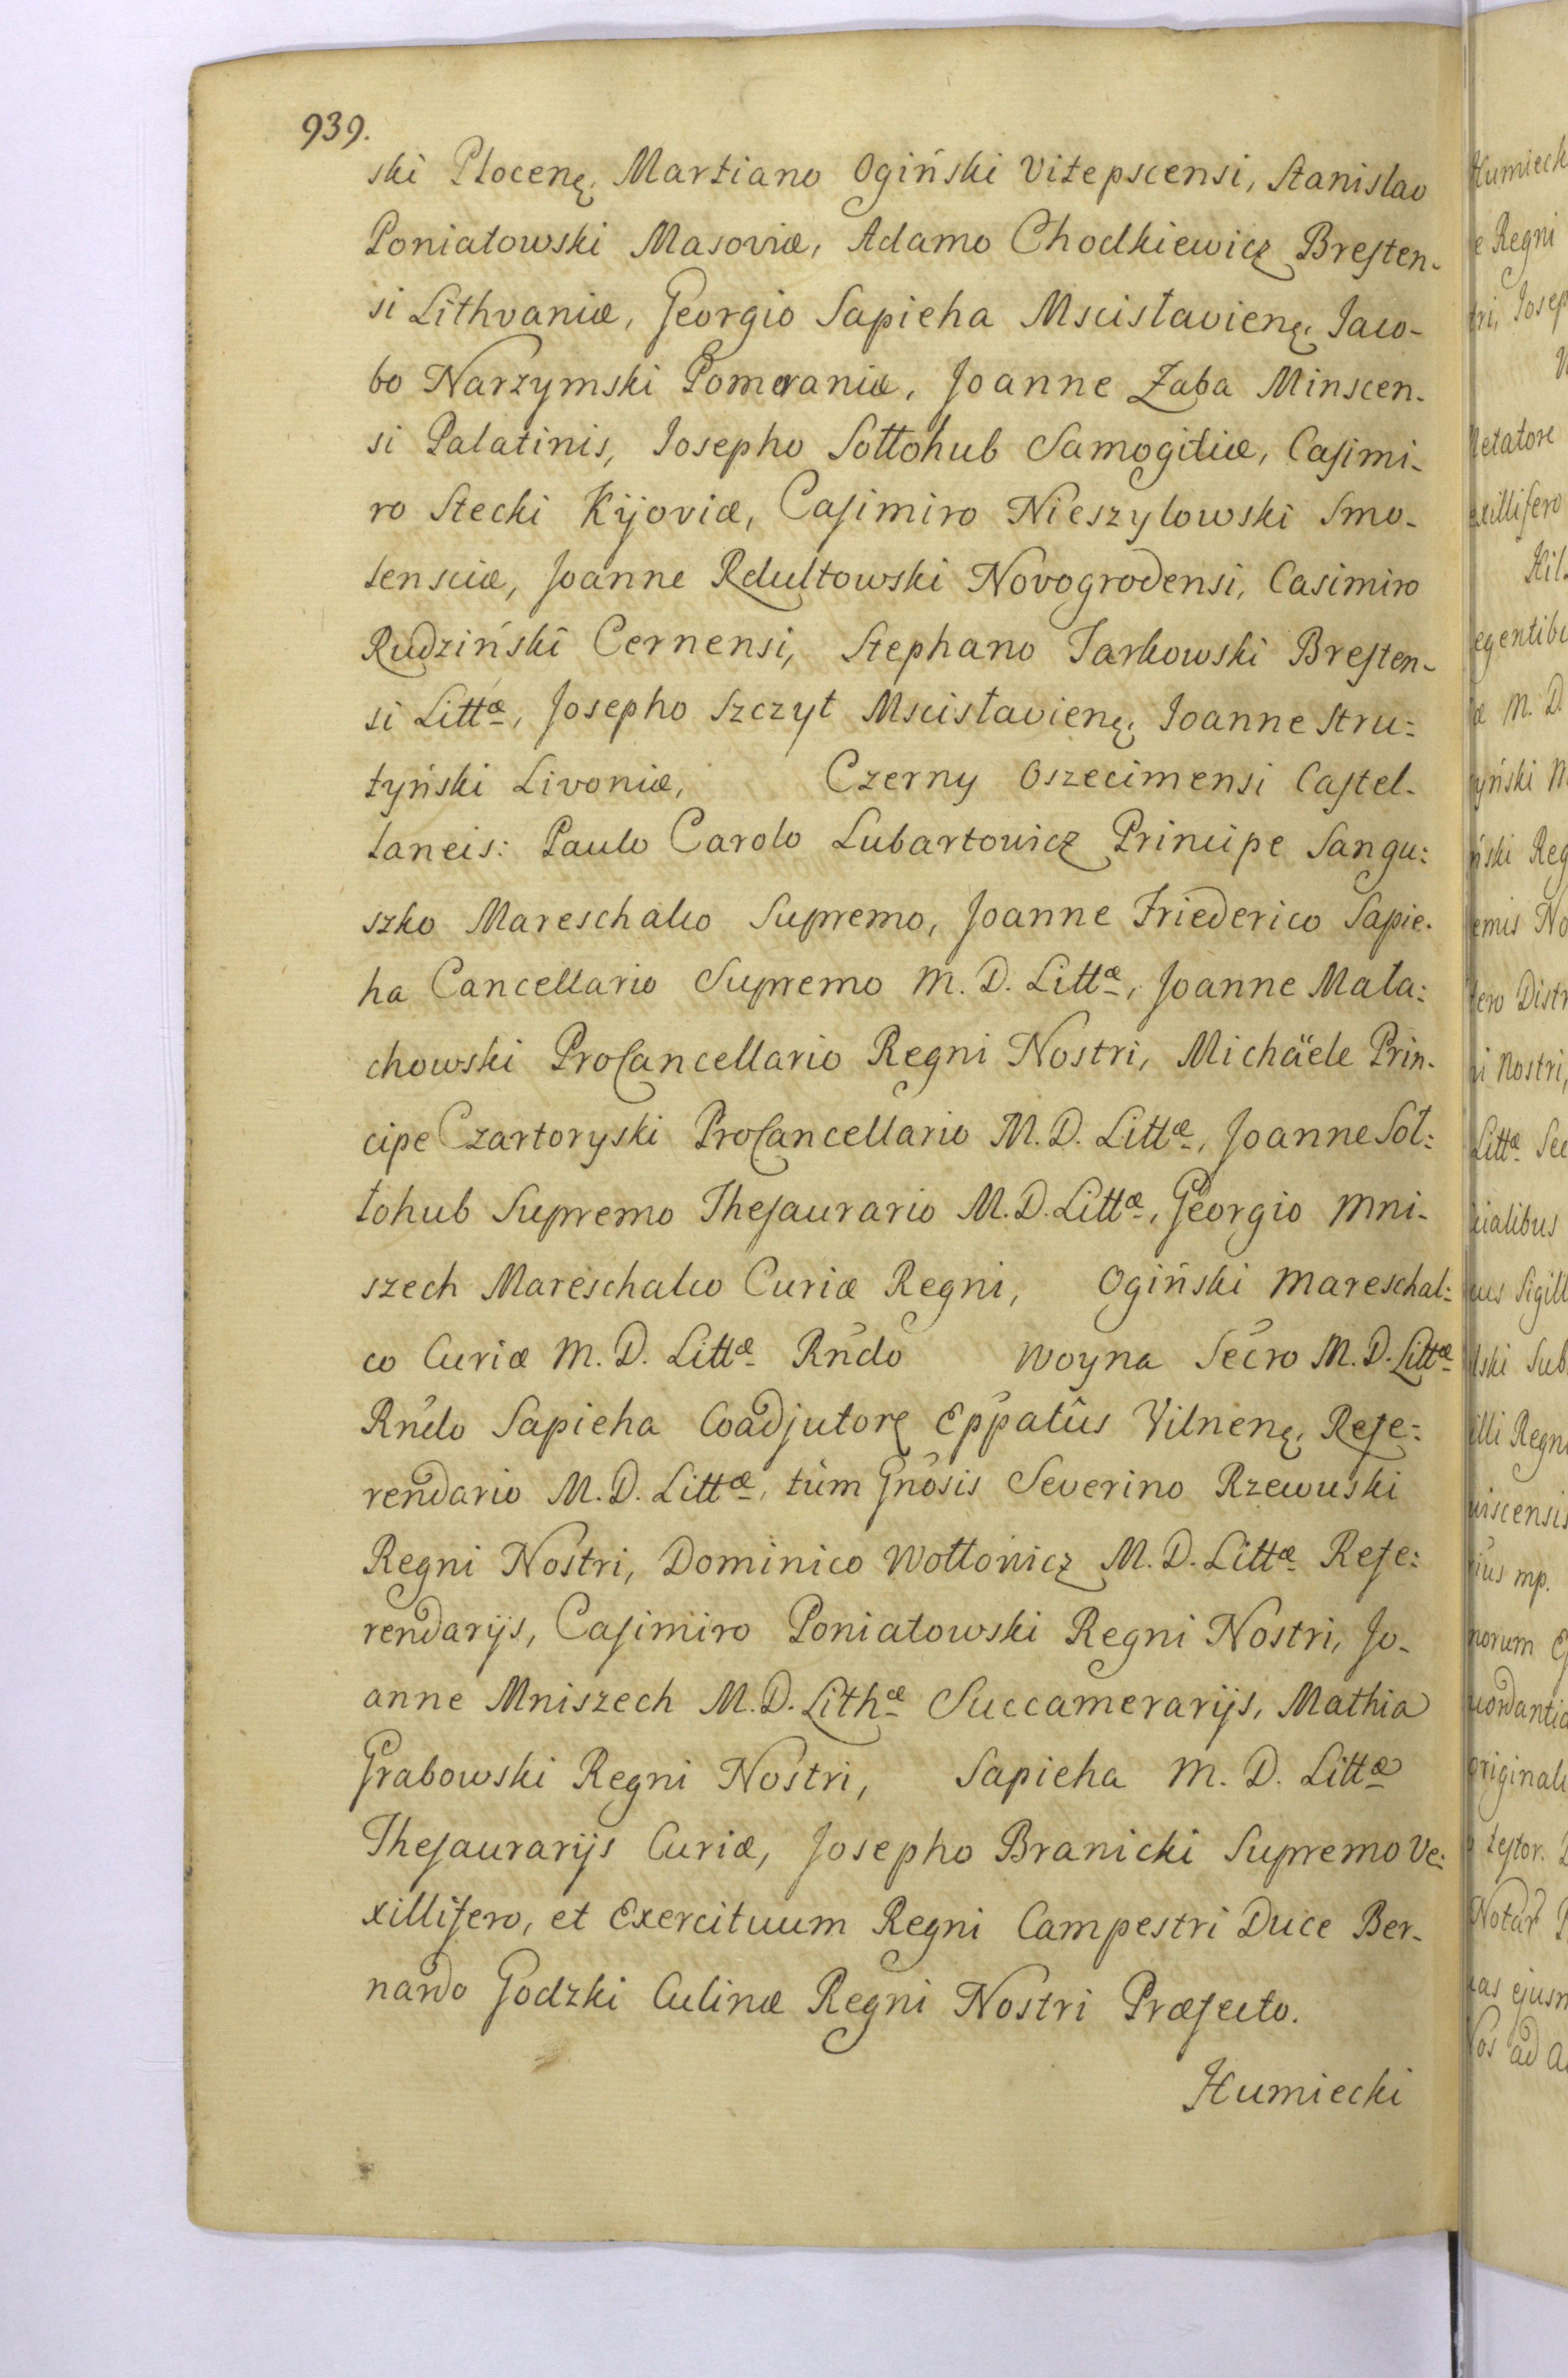 939.
ski Płocenę. Martiano Ogiński Vitepscensi, Stanislao
Poniatowski Masoviæ, Adamo Chodkiewicz Bresten-
si Lithvaniæ, Georgio Sapieha Mscisłavienę. Jaco-
bo Narzymski Pomeraniæ, Joanne Zaba Minscen-
si Palatinis, Josepho Sołłohub Samogitiæ, Casimi-
ro Stecki Kijoviæ, Casimiro Nieszylowski Smo-
lensciæ, Joanne Rdułtowski Novogrodensi, Casimiro
Rudziński Cernensi, Stephano Tarkowski Bresten-
si Littæ, Josepho Szczyt Mscisłavienę. Joanne Stru:
tyński Livoniæ, Czerny Oszecimensi Castel-
laneis: Paulo Carolo Lubartowicz Principe Sangu:
szko Mareschalco Supremo, Joanne Friederico Sapie-
ha Cancellario Supremo M. D. Littæ, Joanne Mała:
chowski ProCancellario Regni Nostri, Michäele Prin-
cipe Czartoryski ProCancellario M. D. Littæ, Joanne Soł:
łohub Supremo Thesaurario M. D. Littæ, Georgio Mni-
szech Mareschalco Curiæ Regni, Ogiński Mareschal:
co Curiæ M. D. Littæ Rndo Woyna Secro M. D. Littæ
Rndo Sapieha Coadjutorę Eppatûs Vilnenę. Refe:
rendario M. D. Littæ, tùm Gnosis Severino Rzewuski
Regni Nostri, Dominico Wołłowicz M. D. Littæ Refe:
rendarijs, Casimiro Poniatowski Regni Nostri, Jo-
anne Mniszech M. D. Lithæ Succamerarijs, Mathia
Grabowski Regni Nostri, Sapieha M. D. Littæ
Thesaurarijs Curiæ, Josepho Branicki Supremo Ve:
xillifero, et Exercituum Regni Campestri Duce Ber-
nardo Godzki Culinæ Regni Nostri Præfecto.
Humiecki